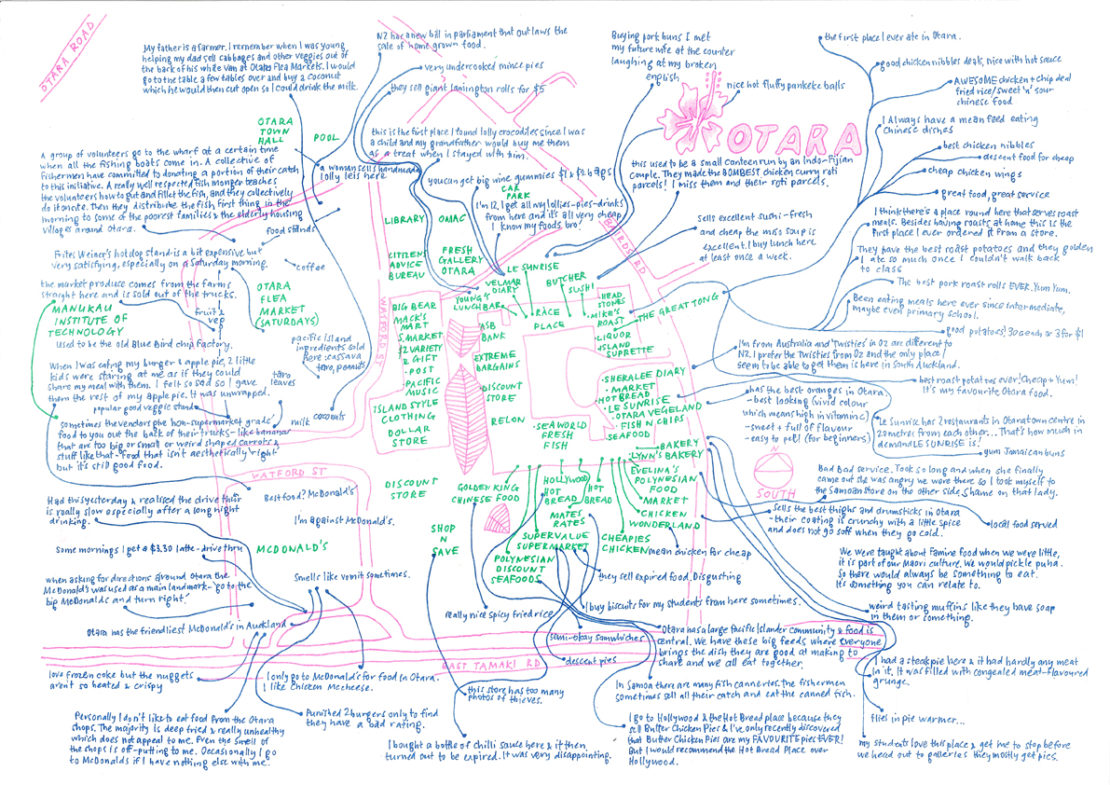 OTARA ROAD
My father is a farmer. I remember when I was young,
helping my dad sell cabbages and other veggies out of
the back of his white van at Otara Flea Markets. I would
go to the table a few tables over and buy a coconut
which he would then cut open so I could drink the milk.
NZ has a new bill in parliament that outlaws the
sale of home grown food.
very undercooked mince pies
they sell giant lamington rolls for $5
Buying pork buns I met
my future wife at the counter
laughing at my broken
english
nice hot fluffy pankeke balls
the first place I ever ate in Otara.
good chicken nibbles deals, nice with hot sauce
AWESOME chicken + chip deal
fried rice/sweet 'n' sour
chinese food
I Always have a mean feed eating
Chinese dishes
best chicken nibbles
descent food for cheap
cheap chicken wings
great food, great service
OTARA
OTARA
TOWN
HALL
POOL
this is the first place I found lolly crocodiles since I was
a child and my grandfather would buy me them
as a treat when I stayed with him.
a woman sells handmade
lolly leis here
you can get big wine gummies $1 & $2 bags
CAR
PARK
I'm 12, I get all my lollies-pies-drinks
from here and it's all very cheap
I know my foods, bro?
this used to be a small canteen run by an Indo-Fijian
couple. They made the BOMBEST chicken curry roti
parcels! I miss them and their roti parcels.
A group of volunteers go to the wharf at a certain time
when all the fishing boats come in. A collective of
fishermen have committed to donating a portion of their catch
to this initiative. A really well respected fish monger teaches
the volunteers how to gut and fillet the fish, and they collectively
do it onsite. Then they distribute the fish first thing in the
morning to some of the poorest families & the elderly housing
villages around Otara.
food stands
LIBRARY
OMAC
CITIZENS
ADVICE
BUREAU
FRESH
GALLERY
OTARA
BAIRDS RD
sells excellent sushi-fresh
and cheap the miso soup is
excellent. I buy lunch here
at least once a week.
I think there's a place round here that serves roast
meals. Besides having roasts at home this is the
first place I ever ordered it from a store.
They have the best roast potatoes and they golden
I ate so much once I couldn't walk back
to class
The best pork roast rolls EVER. Yum Yum.
Been eating meals here ever since intermediate,
maybe even primary school.
good potatoes! 30 cents or 3 for $1
Fritz Weiner's hotdog stand is a bit expensive but
very satisfying, especially on a Saturday morning.
coffee
the market produce comes from the farms
straight here and is sold out of the trucks.
fruit &
veg
OTARA
FLEA
MARKET
(SATURDAYS)
MANUKAU
INSTITUTE OF
TECHNOLOGY
used to be the old Blue Bird chip factory.
pacific island
ingredients sold
here: cassava
taro, peanuts
taro
leaves
coconuts
milk
When I was eating my burger & apple pie, 2 little
kids were staring at me as if they could
share my meal with them. I felt so sad so I gave
them the rest of my apple pie. It was unwrapped.
popular good veggie stand
sometimes the vendors give 'non-supermarket grade'
food to you out the back of their trucks - like bananas
that are too big or small or weird shaped carrots &
stuff like that - food that isn't aesthetically 'right'
but it's still good food.
WATFORD ST
LE SUNRISE
VELMAR
DIARY
YOUNG'S
LUNCH BAR
RACE
PLACE
BUTCHER
SUSHI
HEAD
STONES
MIKE'S
ROAST
THE GREAT TONG
LIQUOR
ISLAND
SUPRETTE
BIG BEAR
MACK'S
MART
S.MARKET
$2 VARIETY
& GIFT
- POST
- PACIFIC
MUSIC
ISLAND STYLE
CLOTHING
DOLLAR
STORE
ASB
BANK
EXTREME
BARGAINS
DISCOUNT
STORE
RELON
SEAWORLD
FRESH
FISH
SHERALEE DIARY
MARKET
HOT BREAD
LE SUNRISE
OTARA VEGELAND
FISH N CHIPS
SEAFOOD
BAKERY
LYNN'S BAKERY
EVELINA'S
POLYNESIAN
FOOD
MARKET
CHICKEN
WONDERLAND
I'm from Australia and Twisties in Oz are different to
NZ. I prefer the Twisties from Oz and the only place I
seem to be able to get them is here in South Auckland.
has the best oranges in Otara.
- best looking (vivid colour
which means high in vitamin c)
- sweet + full of flavour
- easy to peel (for beginners)
best roast potatoes ever! Cheap + Yum!
It's my favourite Otara food.
Le Sunrise has 2 restaurants in Otara town centre in
20 metres from each other... That's how much in
demand LE SUNRISE is!
yum Jamaican buns
SOUTH
Bad Bad service. Took so long and when she finally
came out she was angry we were there so I took myself to
the Samoan store on the other side. Shame on that lady.
sells the best thighs and drumsticks in Otara
- their coating is crunchy with a little spice
and does not go soft when they go cold.
local food served
WATFORD ST
Best food? McDonald's
I'm against McDonald's.
DISCOUNT
STORE
GOLDEN KING
CHINESE FOOD
HOLLYWOOD
HOT
BREAD
HOT
BREAD
MATES
RATES
SUPERVALUE
SUPERMARKET
CHEAPIES
CHICKEN
mean chicken for cheap
POLYNESIAN
DISCOUNT
SEAFOODS
SHOP
N
SAVE
Had this yesterday & realised the drive thru
is really slow especially after a long night
drinking.
Some mornings I get a $3.30 latte - drive thru
MCDONALD'S
when asking for directions around Otara the
McDonald's was used as a main landmark - 'go to the
big McDonalds and turn right.'
Smells like vomit sometimes.
Otara has the friendliest McDonald's in Auckland
they sell expired food. Disgusting
I buy biscuits for my students from here sometimes.
really nice spicy fried rice
semi-okay samwhiches
descent pies
We were taught about Famine food when we were little,
it is part of our Maori culture. We would pickle puha.
So there would always be something to eat.
It's something you can relate to.
weird tasting muffins like they have soap
in them or something.
Otara has a large Pacific Islander community & food is
central. We have these big feeds where everyone
brings the dish they are good at making to
share and we all eat together.
EAST TAMAKI RD
love frozen coke but the nuggets
arent so heated & crispy
I only go to McDonald's for food in Otara.
I like Chicken McCheese.
this store has too many
photos of thieves.
In Samoa there are many fish canneries. the fishermen
sometimes sell all their catch and eat the canned fish.
I had a steak pie here & it had hardly any meat
in it. It was filled with congealed meat-flavoured
grunge.
flies in pie warmer...
Personally I don't like to eat food from the Otara
shops. The majority is deep fried & really unhealthy
which does not appeal to me. Even the smell of
the shops is off-putting to me. Occasionally I go
to McDonalds if I have nothing else with me.
Punished 2 burgers only to find
they have a bad rating.
I bought a bottle of chilli sauce here & it then
turned out to be expired. It was very disappointing.
I go to Hollywood & the Hot Bread place because they
sell Butter Chicken Pies & I've only recently discovered
that Butter Chicken Pies are my FAVOURITE pies EVER!
But I would recommend the Hot Bread Place over
Hollywood.
my students love this place & get me to stop before
we head out to galleries they mostly get pies.